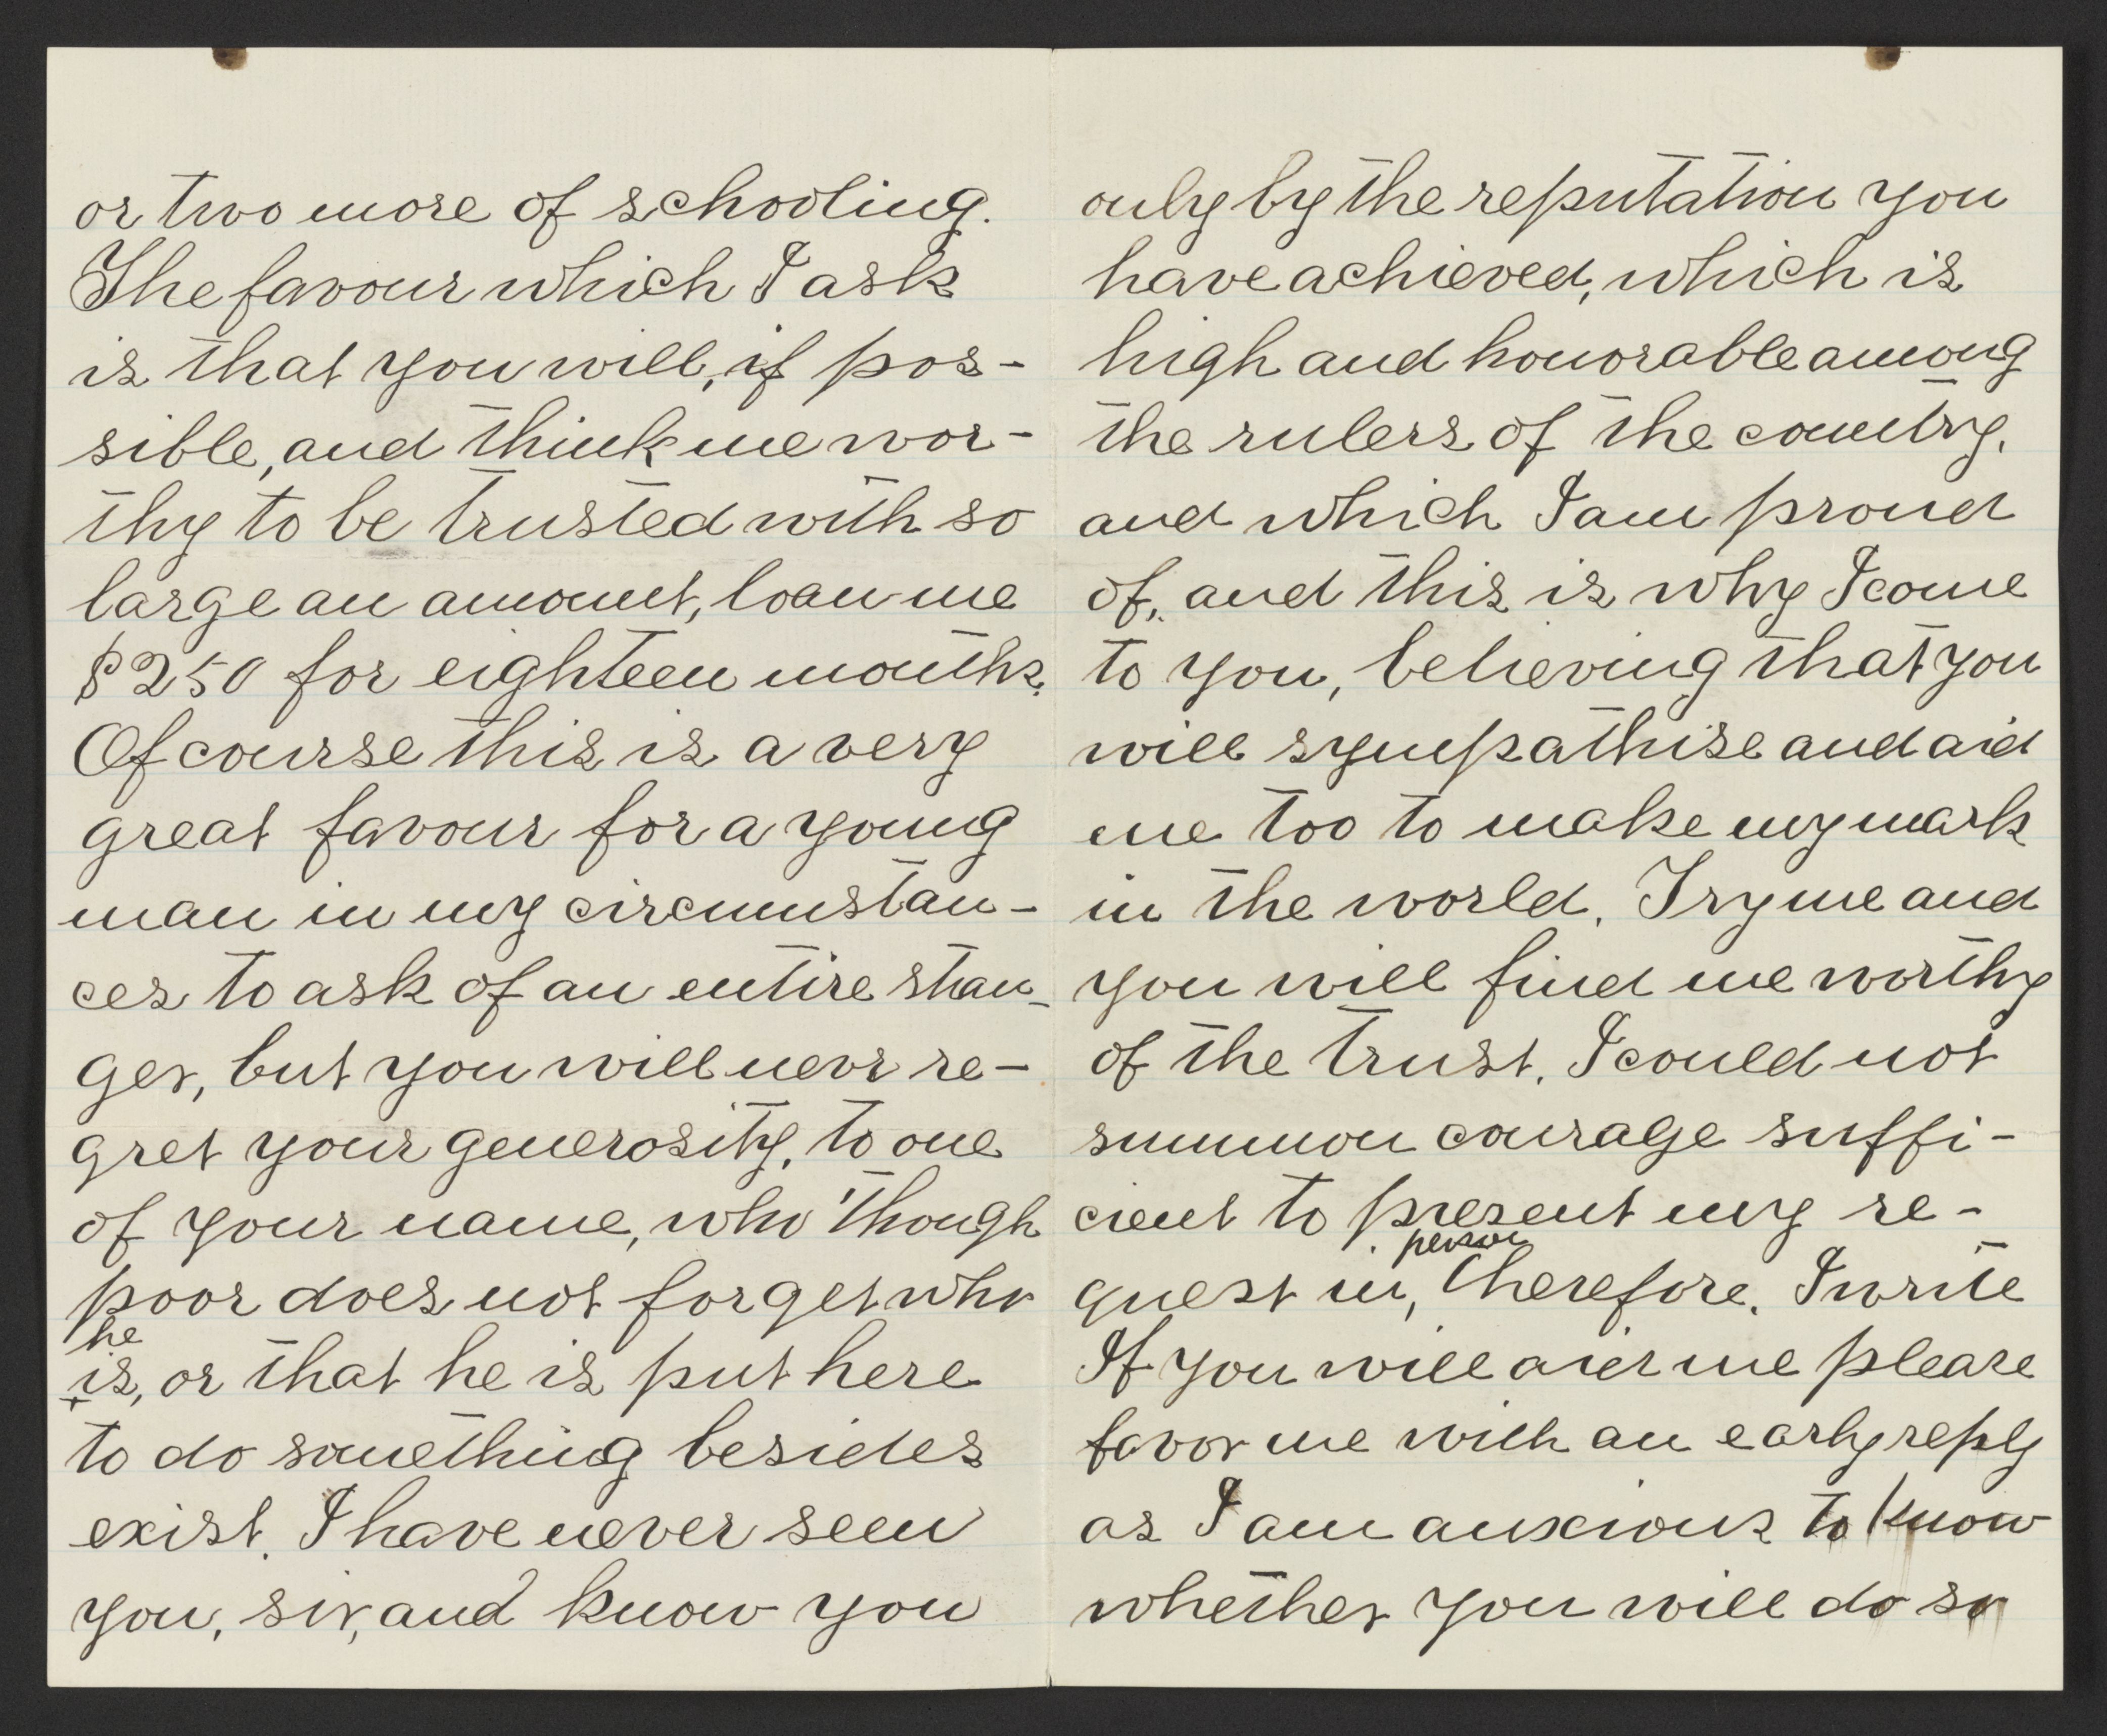 or two more of schooling.
The favour which I ask
is that you will, if pos-
sible, and think me wor-
thy to be trusted with so
large an amount, loan me
$250 for eighteen months.
Of course this is a very
great favour for a young
man in my circumstan-
ces to ask of an entire stran-
ger, but you will never re-
gret your generosity, to one
of your name, who 'though
poor does not forget who
he
is, or that he is put here
to do something besides
exist. I have never seen
you, sir, and know you
only by the reputation you
have achieved, which is
high and honorable among
the rulers of the country,
and which I am proud
of, and this is why I come
to you, believing that you
will sympathise and aid
me too to make my mark
in the world. Try me and
you will find me worthy
of the trust. I could not
summon courage suffi-
cient to present my re-
person
quest in, therefore, I write
If you will aid me please
favor me with an early reply
as I am anxious to know
whether you will do so